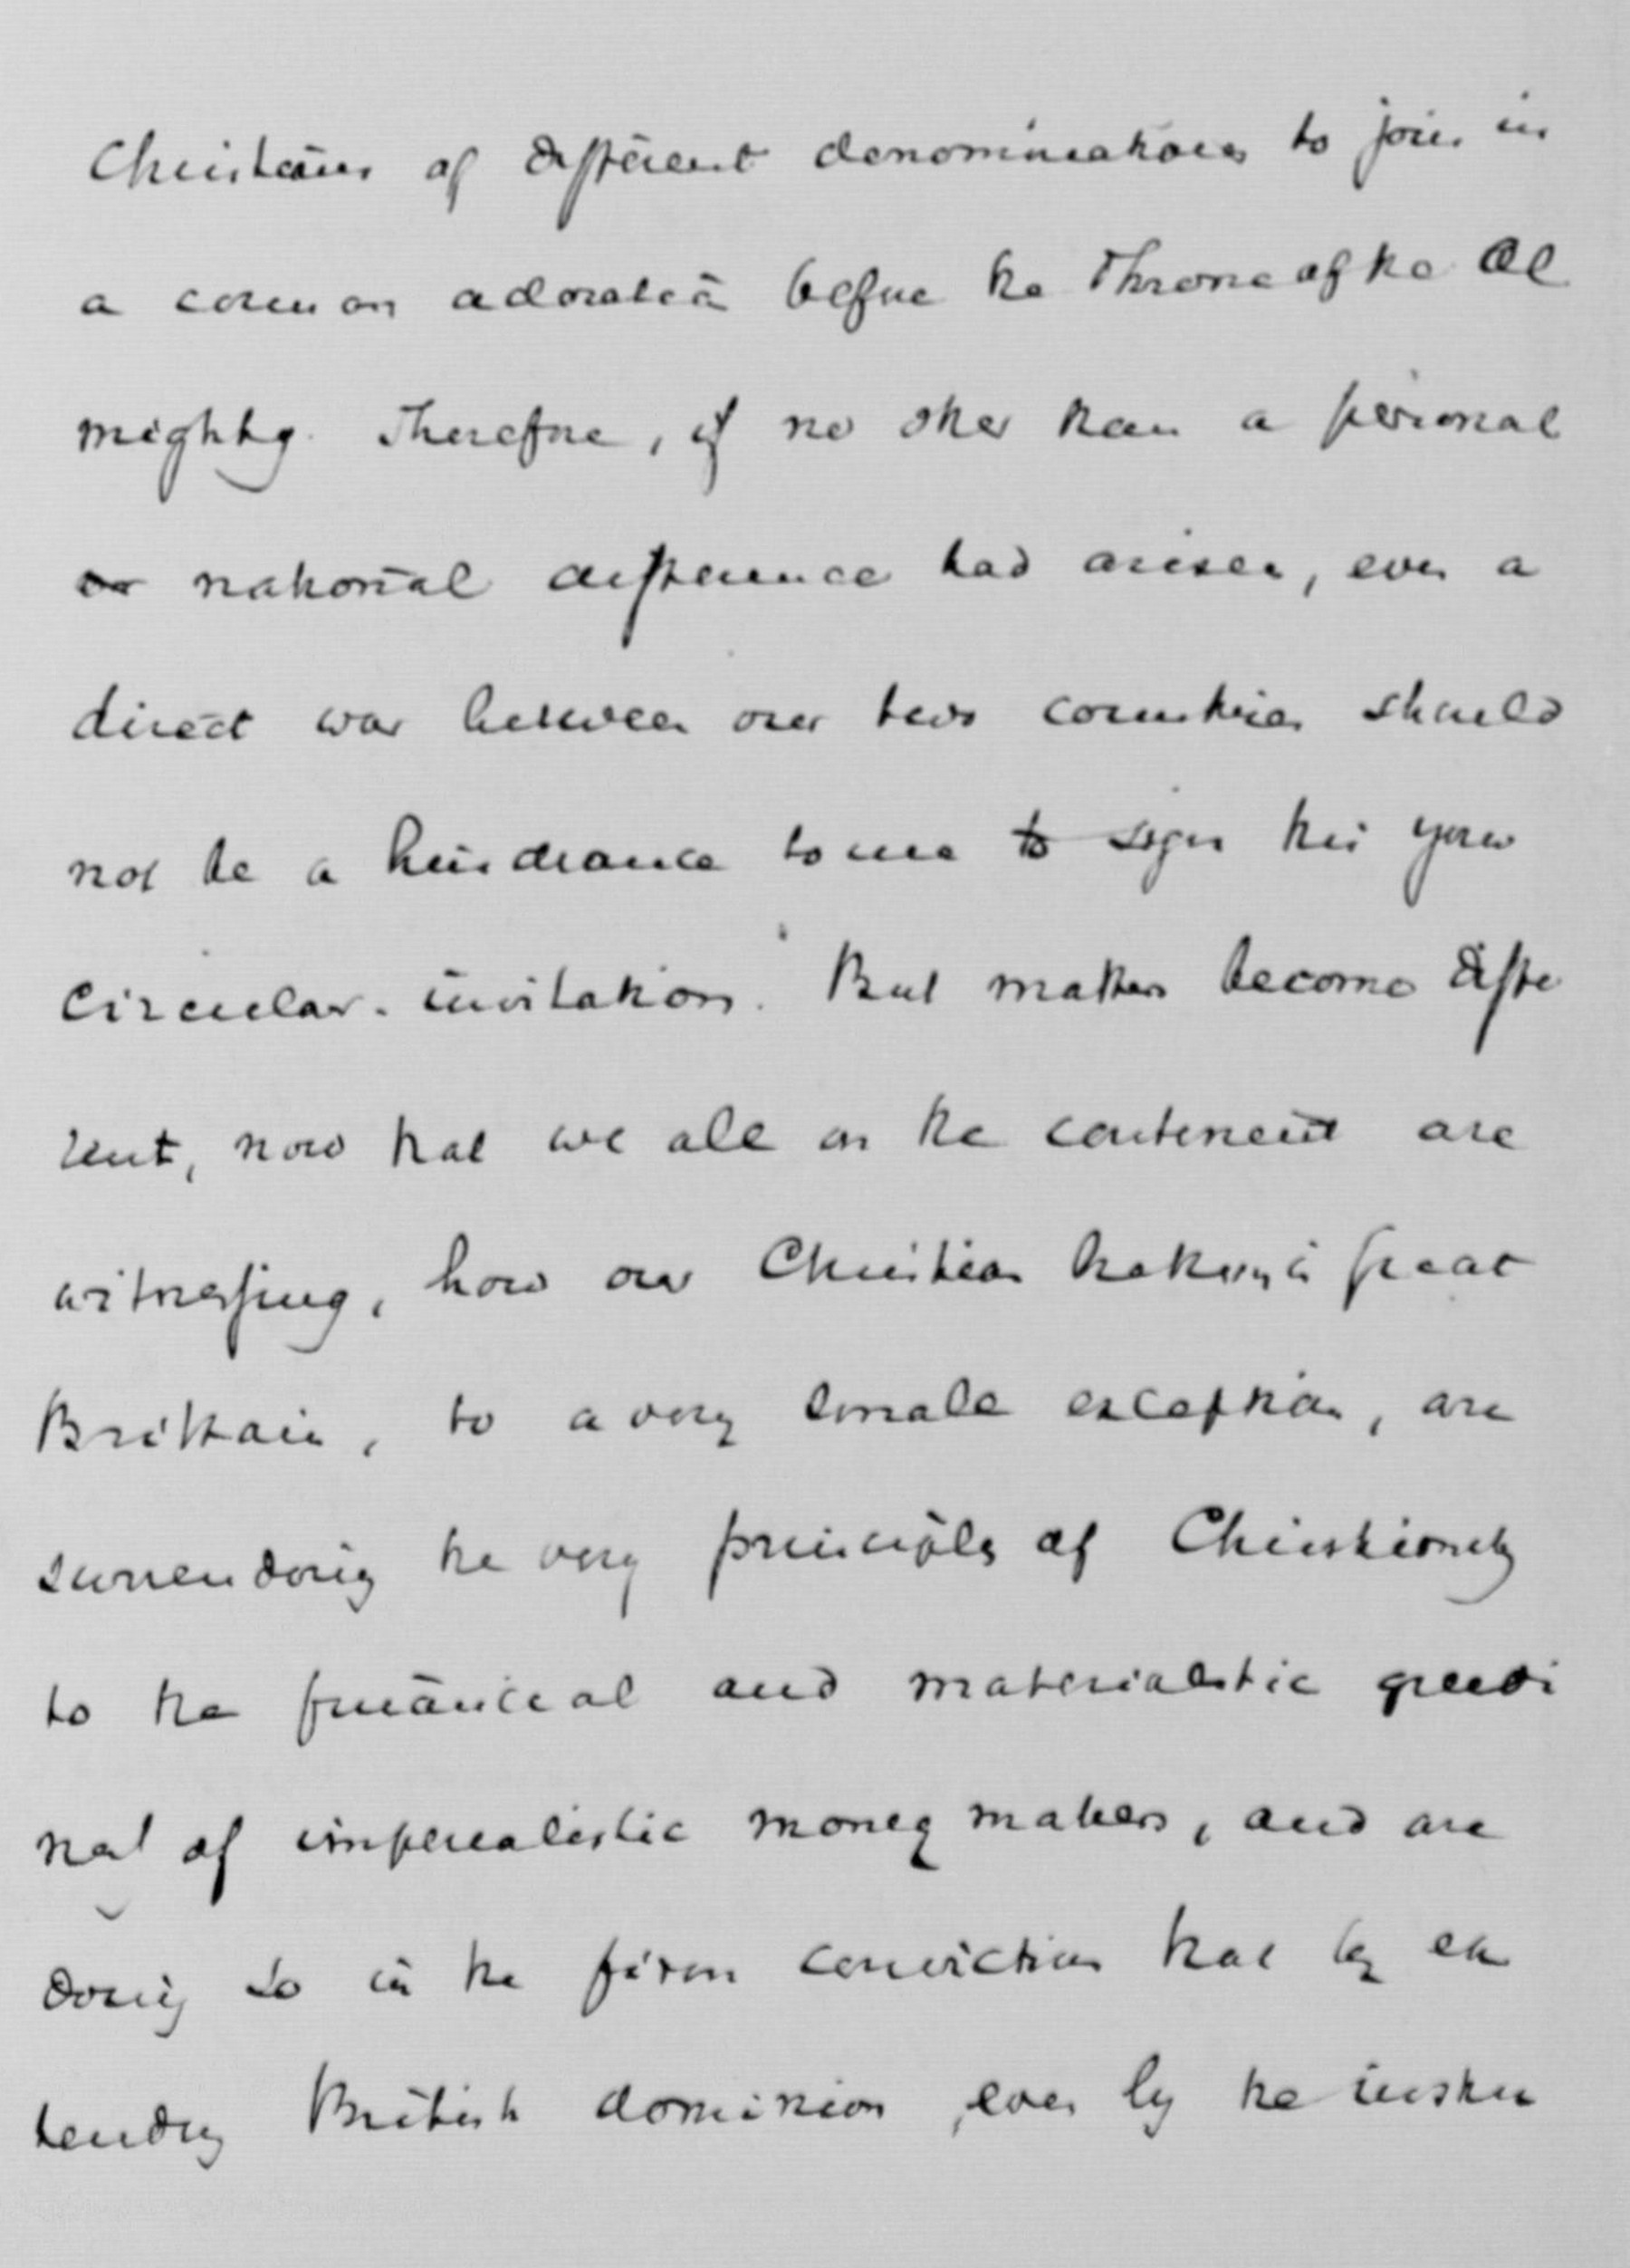 Christians of different denominations to join in
a common adoration before the Throne of the Al
mighty. Therefore, if no other than a personal
or national difference had arisen, even a
direct war between our two countries should
not be a hindrance to me to sign this your
circular-invitation. But matters become diffe
rent, now that we all on the continent are
witnessing, how our Christian in Great
Brittain, to a very small exception, are
surrendring the very principles of Christianity
to the financial and materialistic greedi
nes of imperealistic money makers, and are
doing so in the firm conviction that by ex
tending British dominion, even by the instru